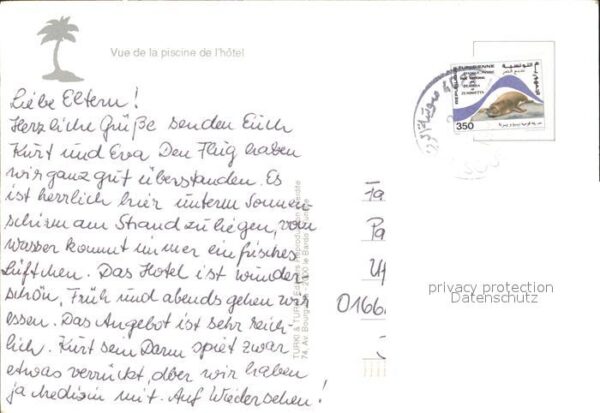 Vue de la piscine de l'hôtel
Liebe Eltern!
Herzliche Grüße senden Euch
Kurt und Eva Den Flug haben
wir ganz gut überstanden. Es
ist herrlich hier unterm Sonnen-
schirm am Strand zu liegen, vom
Wasser kommt immer ein frisches
Lüftchen. Das Hotel ist wunder-
schön, Früh und abends gehen wir
essen. Das Angebot ist sehr reich-
lich. Kurt sein Darm spielt zwar
etwas verrückt, aber wir haben
ja Medizin mit. Auf Wiedersehen!
REPUBLIQUE TUNISIENNE
350
Fa
Pa
0166
privacy protection
Datenschutz